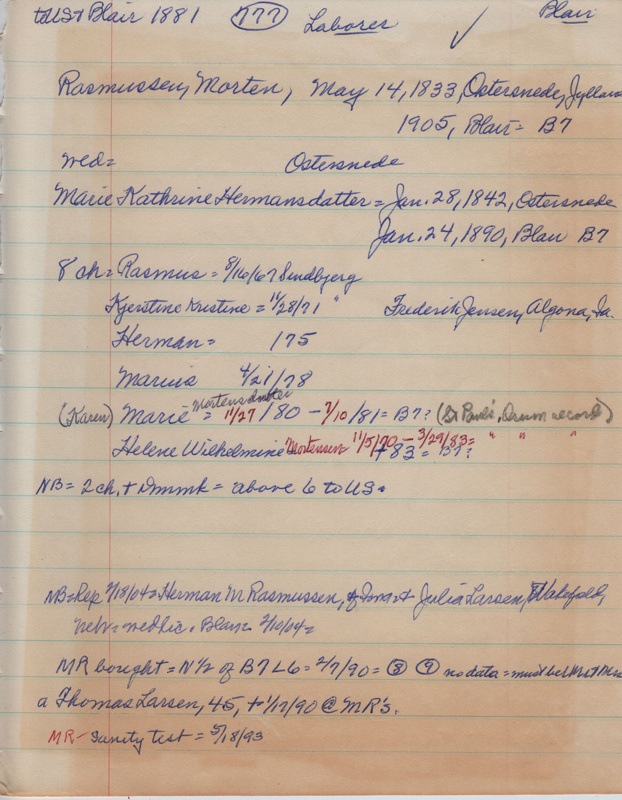 +US+ Blair 1881 777 Laborer Blair
Rasmussen, Morten, May 14, 1833, Ostersnede, Jyllan
1905, Blair = B7
wed = Ostersnede
Marie Kathrine Hermansdatter = Jan. 28, 1842, Ostersnede
Jan. 24, 1890, Blair B7
8 ch = Rasmus = 8/16/67 Sindbjerg
Kjerstine Kristine = 11/28/71 " Frederik Jensen, Algona, Ia.
Herman = 175
Marius 4/21/78
Mortensdatter
(Karen) Marie = 11/27/80 - 7/10/81 = B7? (St Paul's, Orum record)
Helene Wilhelmine Mortensen 11/5/70 - 3/29/83 = " " "
+ 83 = B7?
NB = 2 ch. + Dnmk = above 6 to US.
NB = Rep 2/18/04 = Herman M Rasmussen, Julia Larsen, Wakefield,
Nebr = wed lic. Blair 2/10/04 =
MR bought = N 1/2 of B7 L6 = 2/7/90 = 8 9 no data = must be
a Thomas Larsen, 45, + 1/17/90 @ MR's.
MR - Sanity test = 5/18/93